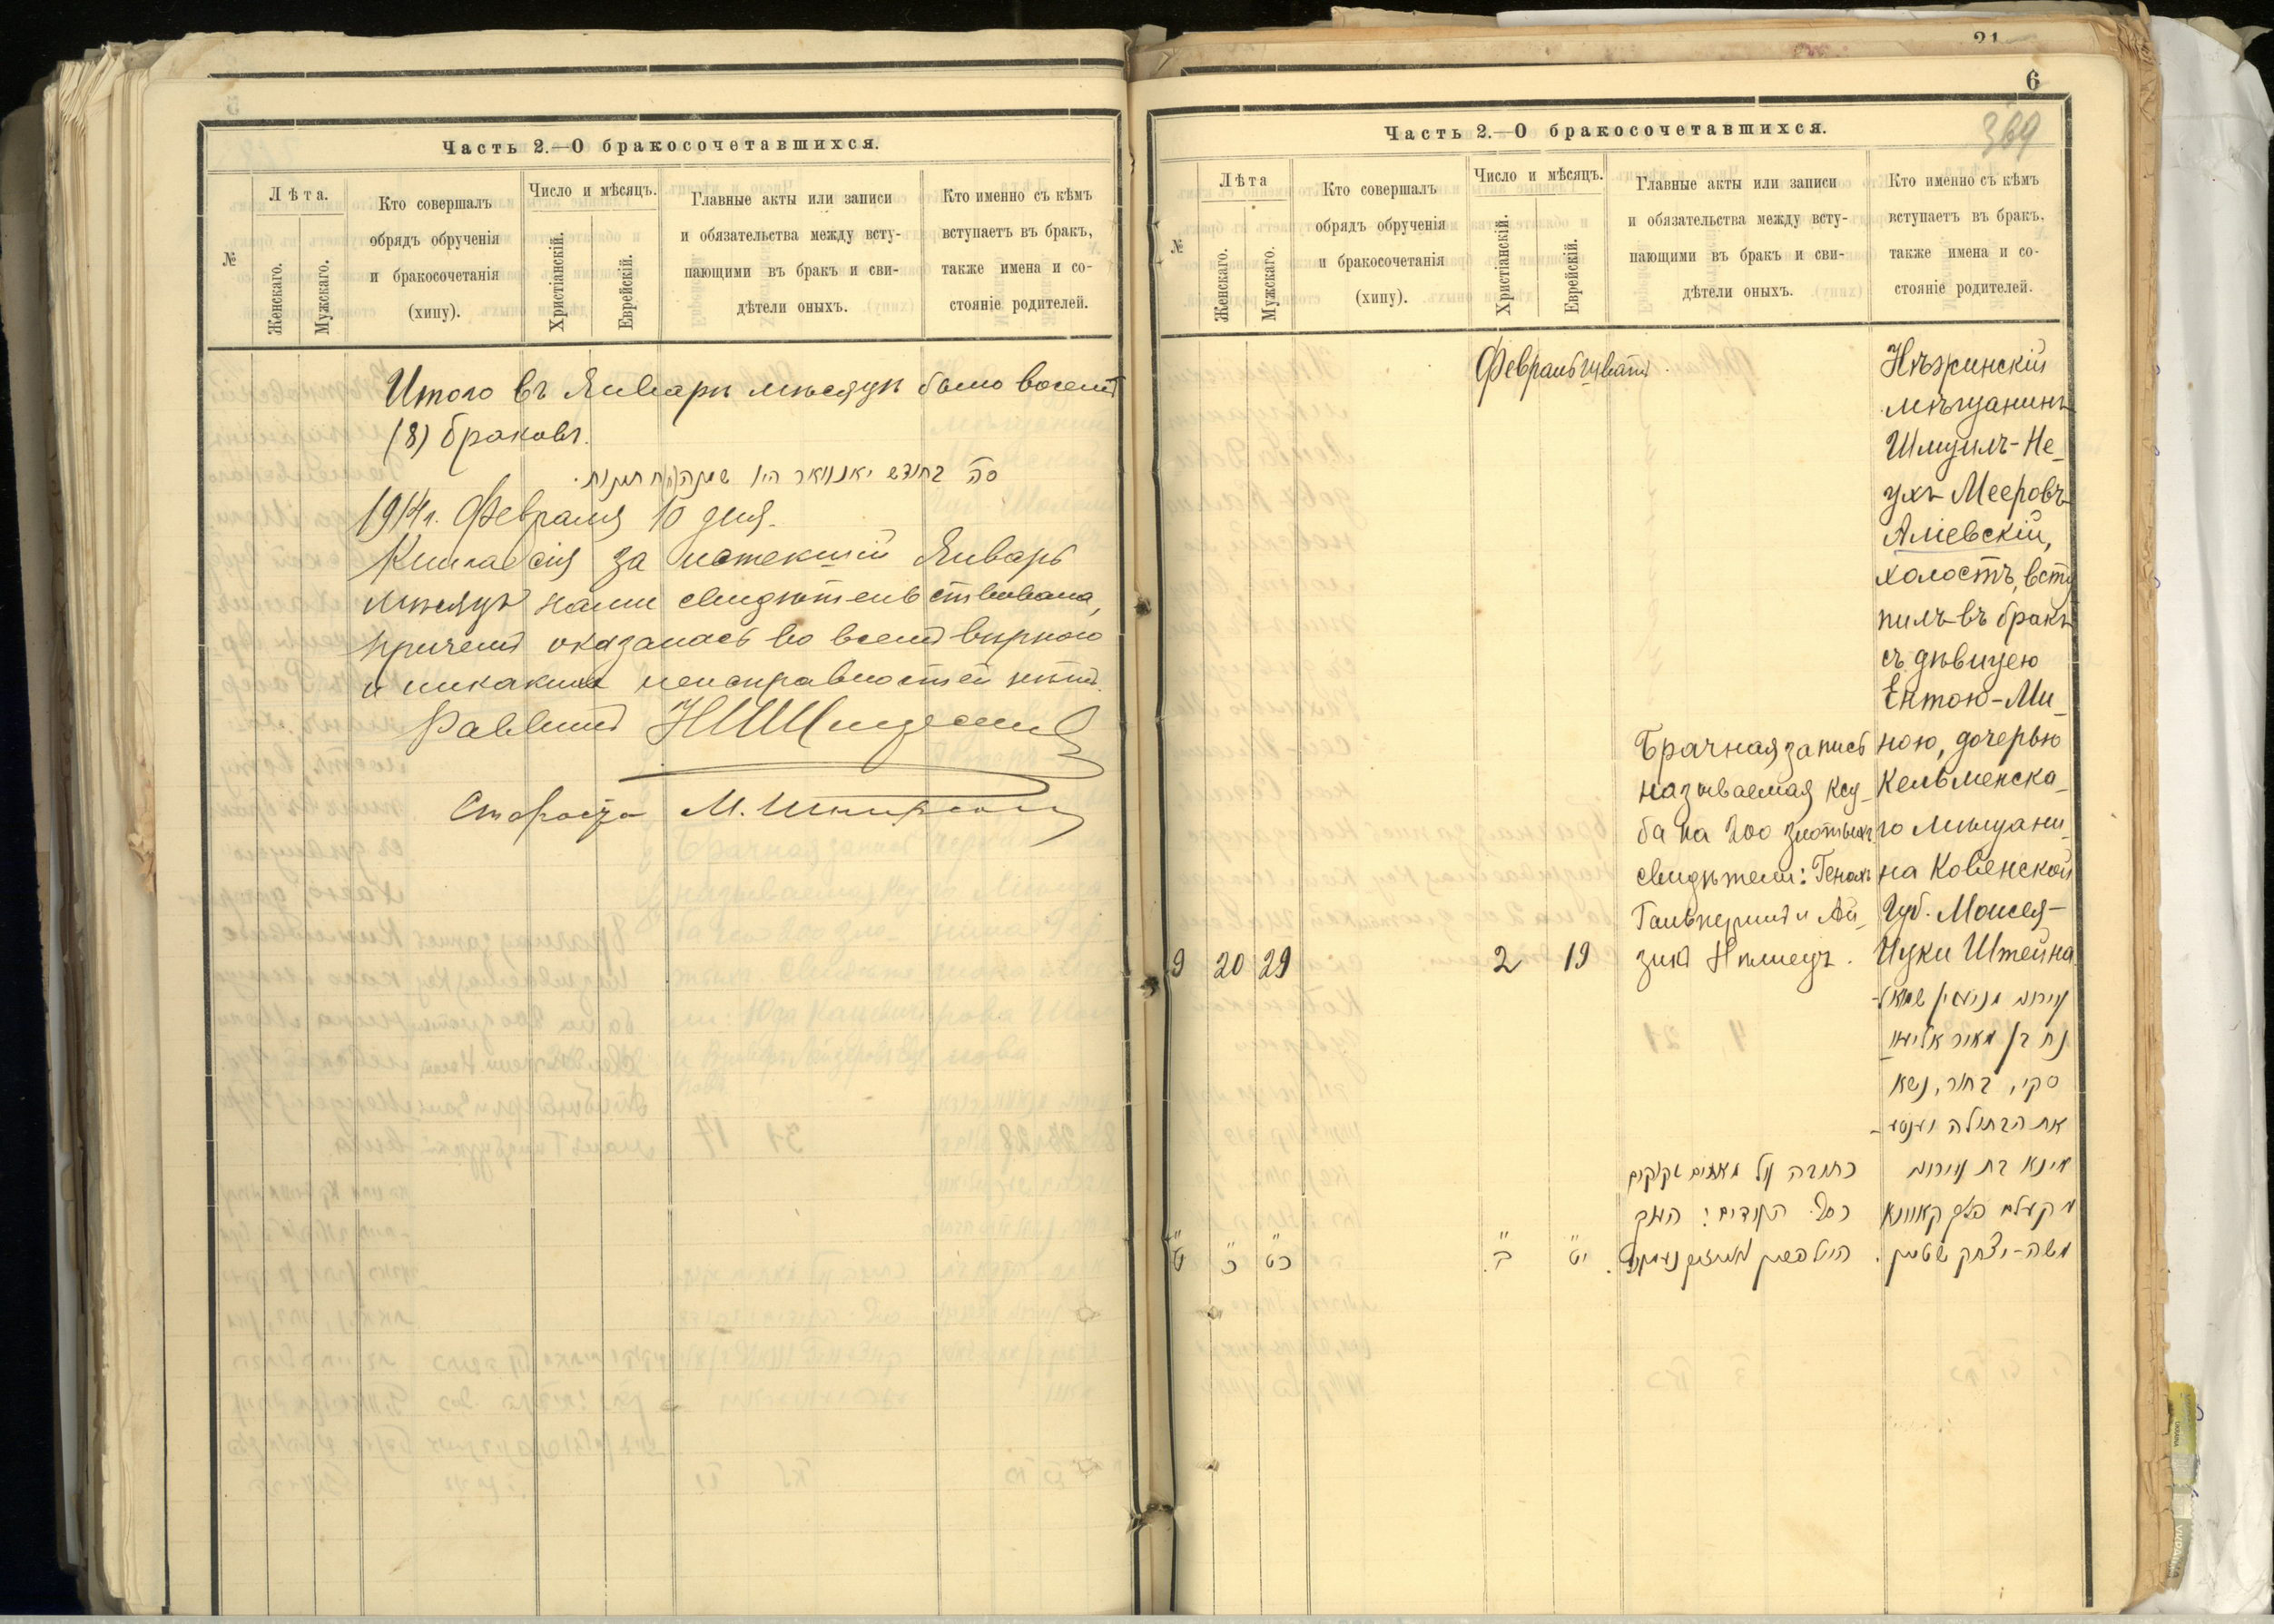 Часть 2.—О бракосочетавшихся.
№
Лѣта.
Женскаго.
Мужскаго.
Кто совершалъ
обрядъ обрученія
и бракосочетанія
(хипу).
Число и мѣсяцъ.
Христіанскій.
Еврейскій.
Главные акты или записи
и обязательства между всту-
пающими въ бракъ и сви-
дѣтели оныхъ.
Кто именно съ кѣмъ
вступаетъ въ бракъ,
также имена и со-
стояніе родителей.
Итого въ Январѣ мѣсяцѣ было восемь
(8) браковъ.
בחודש יאנואר היו שמנה חתונות.
1914 г. Февраля 10 дня.
Книга сія за истекшій Январь
мѣсяцъ нами свидѣтельствована,
причемъ оказалась во всемъ вѣрною
и никакихъ неисправностей нѣтъ.
Раввинъ
Староста М.
21
6
369
Часть 2.—О бракосочетавшихся.
№
Лѣта
Женскаго.
Мужскаго.
Кто совершалъ
обрядъ обрученія
и бракосочетанія
(хипу).
Число и мѣсяцъ.
Христіанскій.
Еврейскій.
Главные акты или записи
и обязательства между всту-
пающими въ бракъ и сви-
дѣтели оныхъ.
Кто именно съ кѣмъ
вступаетъ въ бракъ,
также имена и со-
стояніе родителей.
Февраль Шватъ
9 20 29
2 19
Брачная запись
называемая ксу-
ба на 200 злотыхъ
свидѣтели: Генахъ
Гальперинъ и Ай-
зикъ Нѣмецъ.
Нѣжинскій
мѣщанинъ
Шмуилъ-Не-
ухъ Мееровъ
Аліевскій,
холостъ, всту
пилъ въ бракъ
съ дѣвицею
Ентою-Ми-
ною, дочерью
Кельменска-
го мѣщани-
на Ковенской
Губ. Моисея-
Ицки Штейна
נח בן מאיר אליעו
סקי, בחור, נשא
את הבתולה יענטע-
מינא בת עירוני
מקעלם פלך קאוונא
משה-יצחק שטיין.
כתובה על מאתים זקוקים
כסף. העדים: הענך
ט כ כט
ב יט